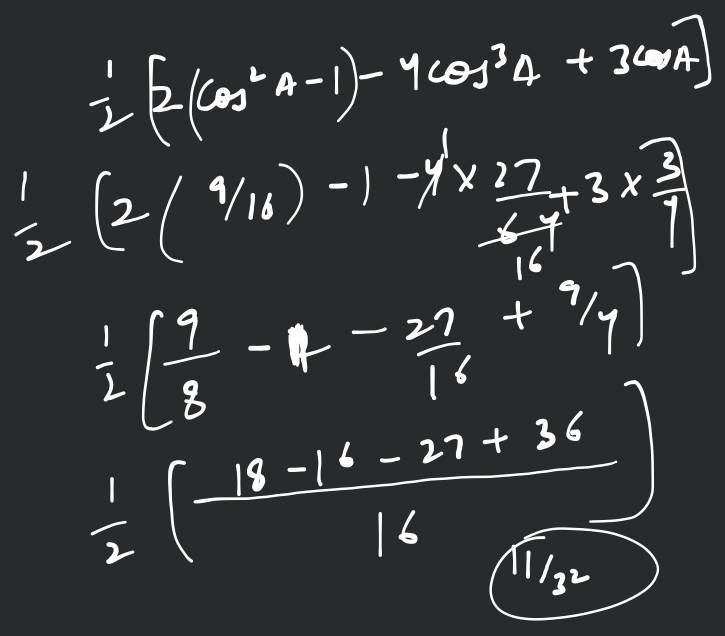 1/2 [2(cos² A-1) - 4cos³A + 3cosA]
1/2 [2( 9/16) - 1 - 4¹ × 27/64 16 + 3 × 3/4]
1/2 [9/8 - 1 - 27/16 + 9/4]
1/2 [18 - 16 - 27 + 36 / 16]
11/32